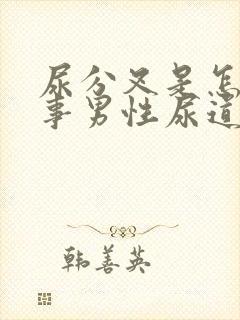 尿分叉是怎
事男性尿道
韩善英